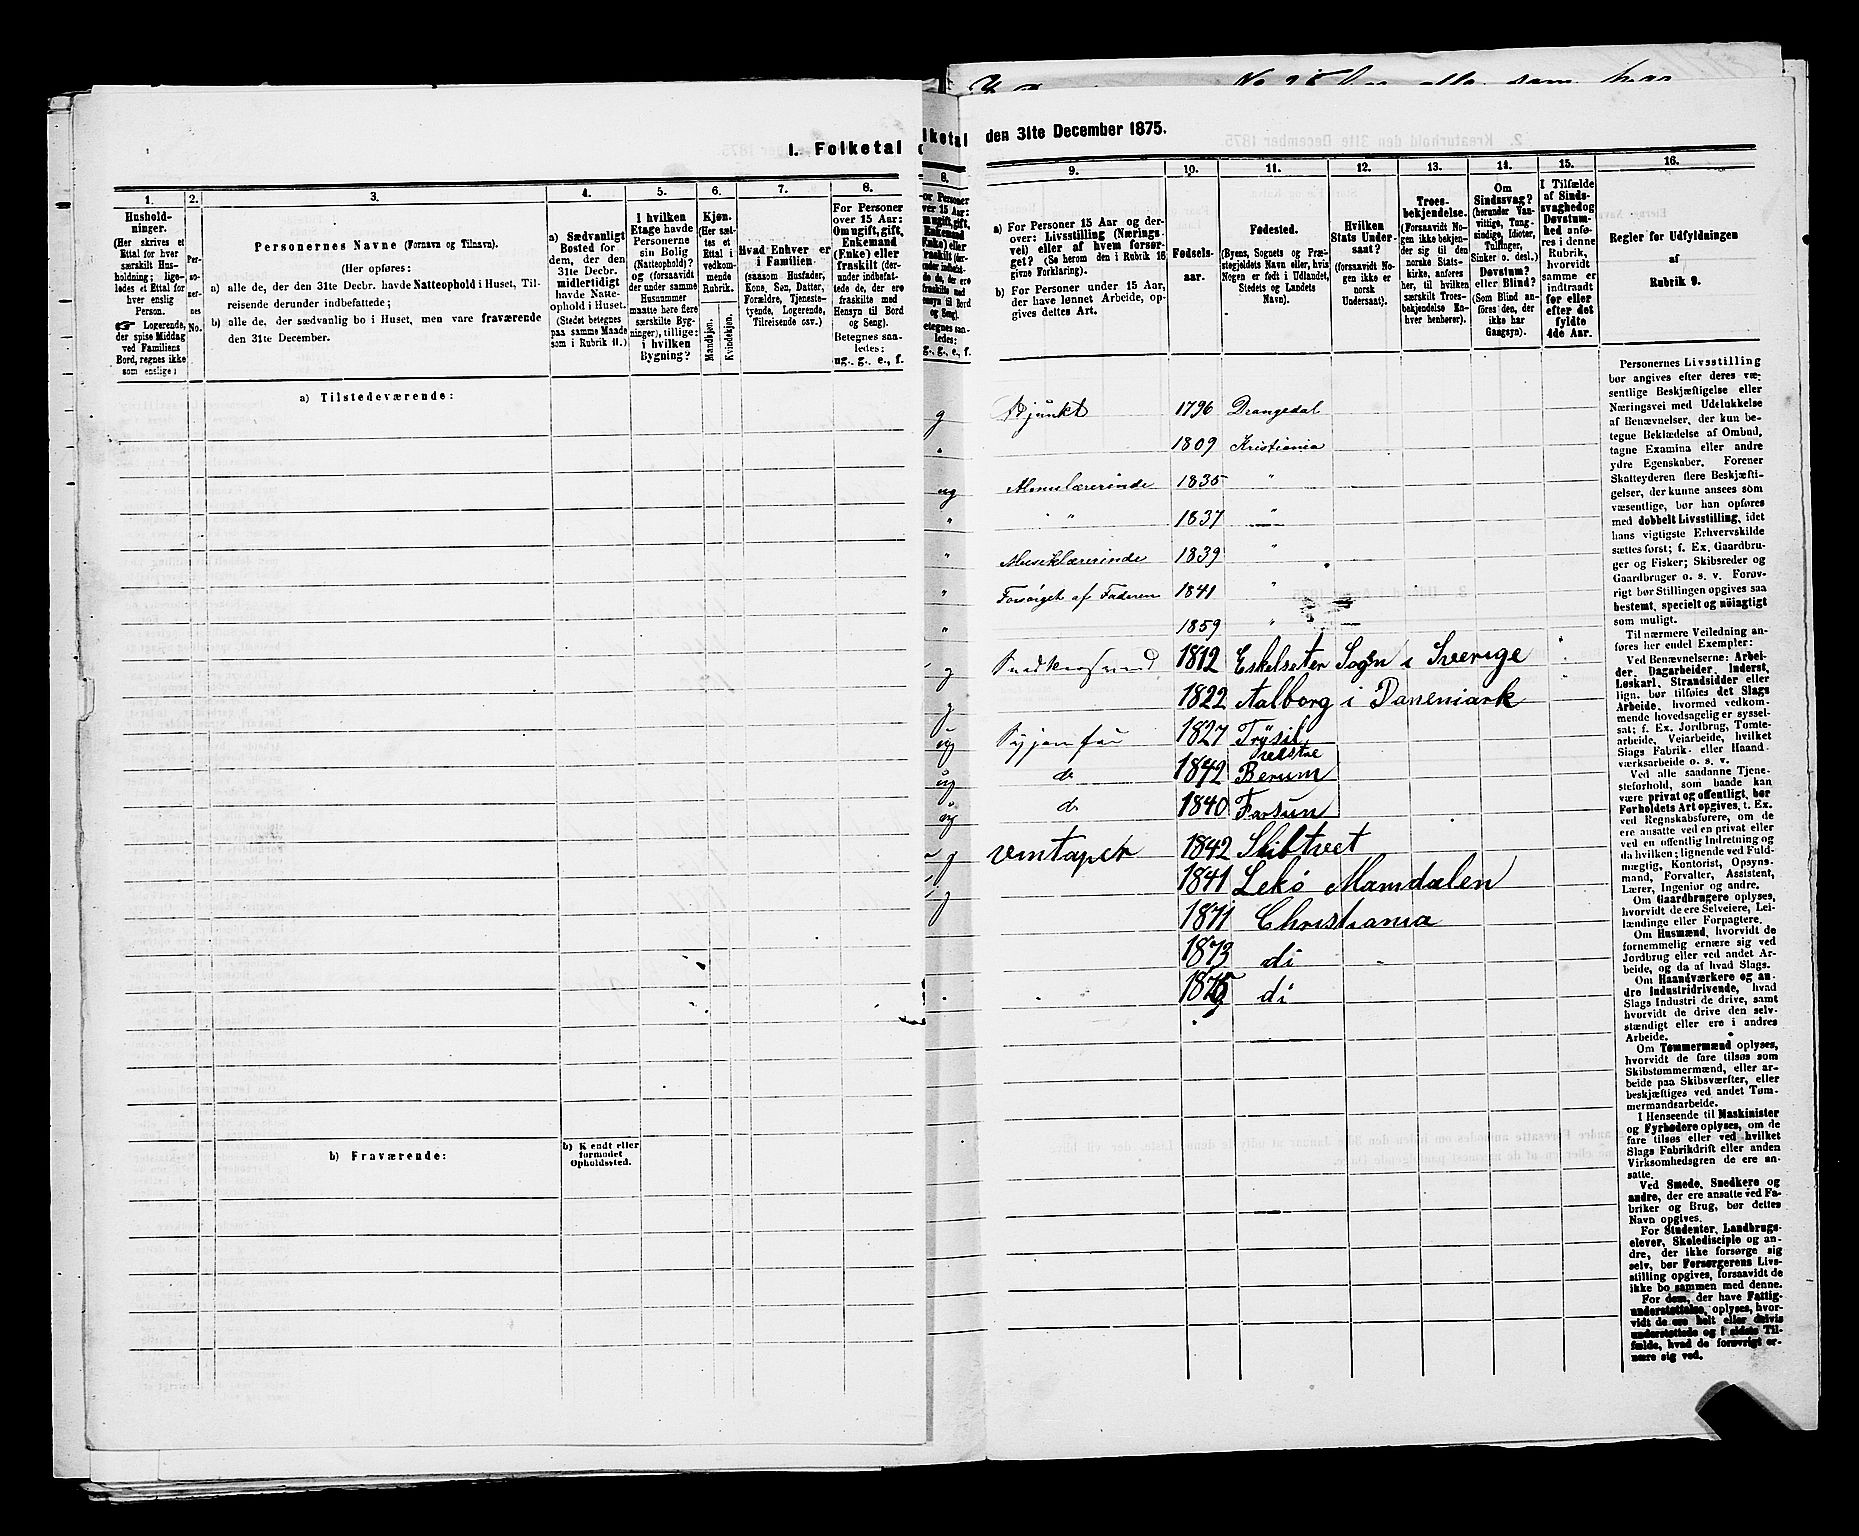 No
alle som
I. Folketal
1.
2.
3.
4.
5.
6.
7.
8.
Hushold-
ninger.
(Her skrives et
Ettal for hver
særskilt Hus-
holdning; lige-
ledes et Ettal for
hver enslig
Person.
☞ Logerende,
der spise Middag
ved Familiens
Bord, regnes ikke
som enslige)
Per-
so-
ner-
nes
No.
Personernes Navne (Fornavn og Tilnavn).
(Her opføres:
a) alle de, der den 31te Decbr. havde Natteophold i Huset, Til-
reisende derunder indbefattede;
b) alle de, der sædvanlig bo i Huset, men vare fraværende
den 31te December.
a) Sædvanligt
Bosted for
dem, der den
31te Decbr.
midlertidigt
havde Natte-
ophold i Huset.
(Stedet betegnes
paa samme Maade
som i Rubrik 11.)
I hvilken
Etage havde
Personerne
sin Bolig
(Natteophold)?
og (forsaavidt
der under samme
Husnummer
maatte høre flere
særskilte Byg-
ninger), tillige:
i hvilken
Bygning?
Kjøn.
(Her sæt-
tes et
Ettal i
vedkom-
mende
Rubrik.
Mandkjøn.
Kvindekjøn.
Hvad Enhver er
i Familien.
(saasom Husfader,
Kone, Søn, Datter,
Forældre, Tjeneste-
tyende, Logerende,
Tilreisende osv.)
For Personer
over 15 Aar:
Om ugift, gift,
Enkemand
(Enke) eller
fraskilt (der-
under indbefat-
tede de, der ere
fraskilte med
Hensyn til Bord
og Seng).
Betegnes saa-
ledes:
ug., g., e., f.
a) Tilstedeværende:
b) Fraværende:
b) Kjendt eller
formodet
Opholdssted.
lketal
8.
den 31te December 1875.
9.
10.
11.
12.
13.
14.
15.
16.
a) For Personer 15 Aar og der-
over: Livsstilling (Nærings-
vei) eller af hvem forsør-
get? (Se herom den i Rubrik 16
givne Forklaring).
b) For Personer under 15 Aar,
der have lønnet Arbeide, op-
gives dettes Art.
Fødsels-
aar.
Fødested.
(Byens, Sognets og Præ-
stegjeldets Navn eller, hvis
Nogen er født i Udlandet,
Stedets og Landets
Navn).
Hvilken
Stats Under-
saat?
(forsaavidt No-
gen ikke er norsk
Undersaat).
Troes-
bekjendelse.
(Forsaavidt No-
gen ikke bekjen-
der sig til den
norske Stats-
kirke, anføres
her, til hvilken
særskilt Troes-
bekjendelse En-
hver henhører).
Om
Sindssvag?
(herunder Van-
vittige, Tung-
sindige, Idioter,
Tullinger,
Sinker o. desl.)
Døvstum?
eller Blind?
(Som Blind an-
føres den, der
ikke har
Gangsyn).
I Tilfælde
af Sinds-
svaghed og
Døvstum-
hed anfø-
res i denne
Rubrik,
hvorvidt
samme er
indtraadt
før eller
efter det
fyldte
4de Aar.
Regler for Udfyldningen
af
Rubrik 9.
g Adjunkt 1796 Drangedal
" 1809 Kristiania
ug 1835 "
" " 1837 "
" Musiklærerinde 1839 "
" Forsørget af Faderen 1841 "
" 1859 "
g 1812 Eskelseter Sogn i Sverige
g 1822 Aalborg i Danemark
ug Syjomfru 1827 Trysil
ug do 1842 Vestre Berum
ug do 1840 Farsun
g vintaper 1842 Skibtvet
g 1841 Lekø Namdalen
1871 Christiania
1873 di
1875 di
Personernes Livsstilling
bør angives efter deres væ-
sentlige Beskjæftigelse eller
Næringsvei med Udelukkelse
af Benævnelser, der kun be-
tegne Beklædelse af Ombud,
tagne Examina eller andre
ydre Egenskaber. Forener
Skatteyderen flere Beskjæfti-
gelser, der kunne ansees som
væsentlige, bør han opføres
med dobbelt Livsstilling, idet
hans vigtigste Erhvervskilde
sættes først; f. Ex. Gaardbru-
ger og Fisker; Skibsreder og
Gaardbruger o. s. v. Forøv-
rigt bør Stillingen opgives saa
bestemt, specielt og nøiagtigt
som muligt.
Til nærmere Veiledning an-
føres her endel Exempler:
Ved Benævnelserne: Arbei-
der, Dagarbeider, Inderst,
Løskarl, Strandsidder eller
lign. bør tilføies det Slags
Arbeide, hvormed vedkom-
mende hovedsagelig er syssel-
sat; f. Ex. Jordbrug, Tomte-
arbeide, Veiarbeide, hvilket
Slags Fabrik- eller Haand-
værksarbeide o. s. v.
Ved alle saadanne Tjene-
steforhold, som baade kan
være privat og offentligt, bør
Forholdets Art opgives, t. Ex.
ved Regnskabsførere, om de
ere ansatte ved en privat eller
ved en offentlig Indretning og
da hvilken; lignende ved Fuld-
mægtig, Kontorist, Opsyns-
mand, Forvalter, Assistent,
Lærer, Ingeniør og andre.
Om Gaardbrugere oplyses,
hvorvidt de ere Selveiere, Lei-
lændinge eller Forpagtere.
Om Husmænd, hvorvidt de
fornemmelig ernære sig ved
Jordbrug eller ved andet Ar-
beide, og da af hvad Slags.
Om Haandværkere og an-
dre Industridrivende, hvad
Slags Industri de drive, samt
hvorvidt de drive den selv-
stændigt eller ere i andres
Arbeide.
Om Tømmermænd oplyses,
hvorvidt de fare tilsøs som
Skibstømmermænd, eller ar-
beide paa Skibsværfter, eller
beskjæftiges ved andet Tøm-
mermandsarbeide.
I Henseende til Maskinister
og Fyrbødere oplyses, om de
fare tilsøs eller ved hvilket
Slags Fabrikdrift eller anden
Virksomhedsgren de ere an-
satte.
Ved Smede, Snedkere og
andre, der ere ansatte ved Fa-
briker og Brug, bør dettes
Navn opgives.
For Studenter, Landbrugs-
elever, Skoledisciple og an-
dre, der ikke forsørge sig
selv, bør Forsørgerens Livs-
stilling opgives, forsaavidt de
ikke bo sammen med denne.
For dem, der have Fattig-
understøttelse, oplyses, hvor-
vidt de ere helt eller delvis
understøttede og i sidste Til-
fælde, hvad de forøvrigt er-
nære sig ved.